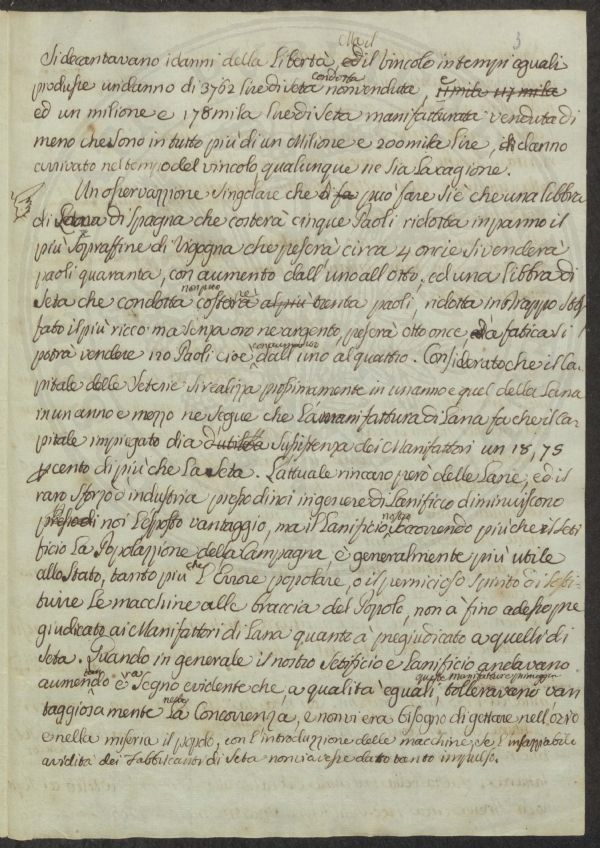 3
Si decantavano i danni della Libertà, Ma il vincolo in tempi eguali
produsse un danno di 3762 lire di seta condotta non venduta,
ed un milione e 178 mila lire di seta manifatturata venduta di
meno che sono in tutto più di un Milione e 200 mila lire, di danno
arrivato nel tempo del vincolo qualunque ne sia la cagione.
Un osservazzione singolare che si può fare si è che una libbra
di Lana di Spagna che costerà cinque Paoli ridotta in panno il
più sopraffine di Vigogna che peserà circa 4 oncie si venderà
paoli quaranta, con aumento dall'uno all'otto, ed una libbra di
Seta che condotta non può costare trenta paoli, ridotta in drappo
fato il più ricco ma senza oro ne argento peserà otto once e a fatica si
potrà vendere 120 Paoli cioè dall'uno al quattro. Considerato che il Ca-
pitale delle Seterie si realizza prossimamente in un anno e quel della Lana
in un anno e mezzo ne segue che la manifattura di Lana fa che il Ca-
pitale impiegato dia di sussistenza dei Manifattori un 18,75
per cento di più che la Seta. L'attuale rincaro però delle Lane, ed il
raro sforzo d'industria presso di noi in genere di Lanificio diminuiscono
noi l'esposto vantaggio, ma il Lanificio nostro soccorrendo più che il Seti
ficio la Popolazzione della Campagna, è generalmente più utile
allo Stato, tanto più che l'Errore popolare, o il pernicioso spirito di sosti-
tuire le macchine alle braccia del Popolo, non à fino adesso pre
giudicato ai Manifattori di Lana quanto à pregiudicato a quelli di
Seta. Quando in generale il nostro Setificio e Lanificio andavano
aumentando era segno evidente che, a qualità eguali, queste manifatture tolleravano van
taggiosamente la Concorrenza, e non vi era bisogno di gettare nell'ozio
e nella miseria il popolo, con l'introduzzione delle macchine, se l'insazziabile
avidità dei Fabbricanti di Seta non vi avesse dato tanto impulso.